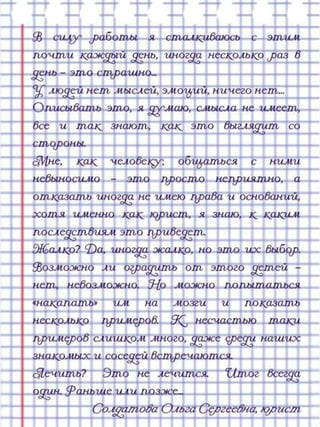 В силу работы я сталкиваюсь с этим
почти каждый день, иногда несколько раз в
день – это страшно...
У людей нет мыслей, эмоций, ничего нет...
Описывать это, я думаю, смысла не имеет,
все и так знают, как это выглядит со
стороны.
Мне, как человеку, общаться с ними
невыносимо – это просто неприятно, а
отказать иногда не имею права и оснований,
хотя именно как юрист, я знаю, к каким
последствиям это приведет.
Жалко? Да, иногда жалко, но это их выбор.
Возможно ли оградить от этого детей –
нет, невозможно. Но можно попытаться
«накапать» им на мозги и показать
несколько примеров. К несчастью таки
примеров слишком много, даже среди наших
знакомых и соседей встречаются.
Лечить? Это не лечится. Итог всегда
один. Раньше или позже...
Солдатова Ольга Сергеевна, юрист